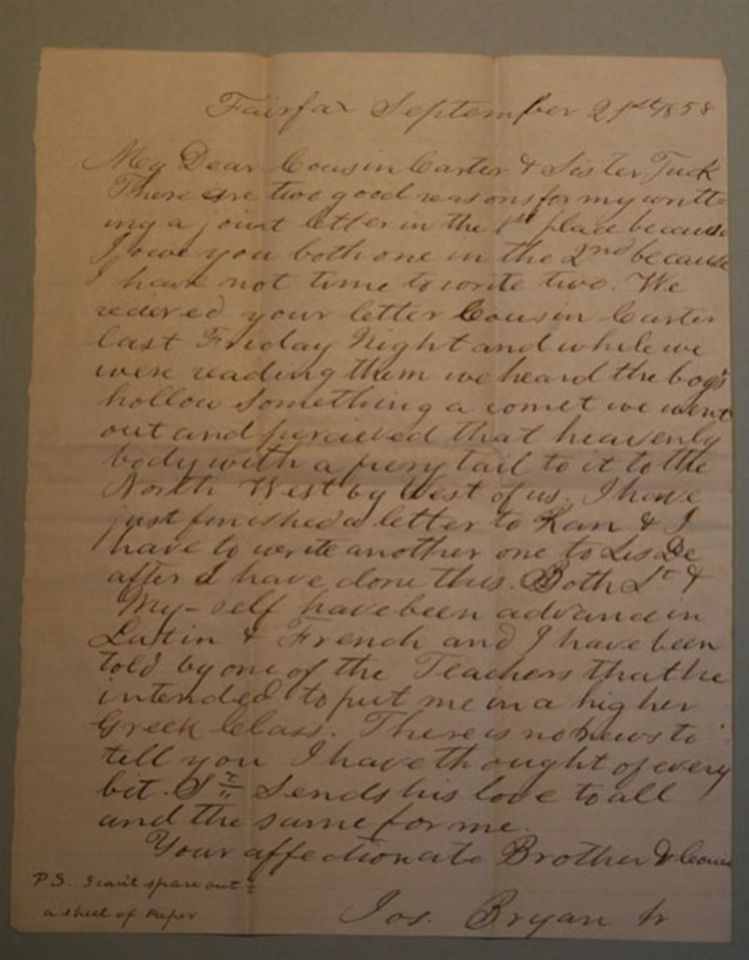 Fairfax September 21st/1858
My Dear Cousin Carter & Sister Tuck
There are two good reasons for my writt=
ing a joint letter in the 1st place because
I owe you both one in the 2nd because
I have not time to write two. We
recieved your letter Cousin Carter
last Friday Night and while we
were reading them we heard the boys
hollow something a comet we went
out and percieved that heavenly
body with a firey tail to it to the
North West by West of us. I have
just finished a letter to Ran & I
have to write another one to Sis De
after I have done this. Both St &
My-self have been advance in
Latin & French and I have been
told by one of the Teachers that he
intended to put me in a higher
Greek Class. There is no news to
tell you I have thought of every
bit. St Sends his love to all
and the same for me.
Your affectionate Brother & Cous
Jos. Bryan Jr
P.S. I can't spare out
a sheet of Paper